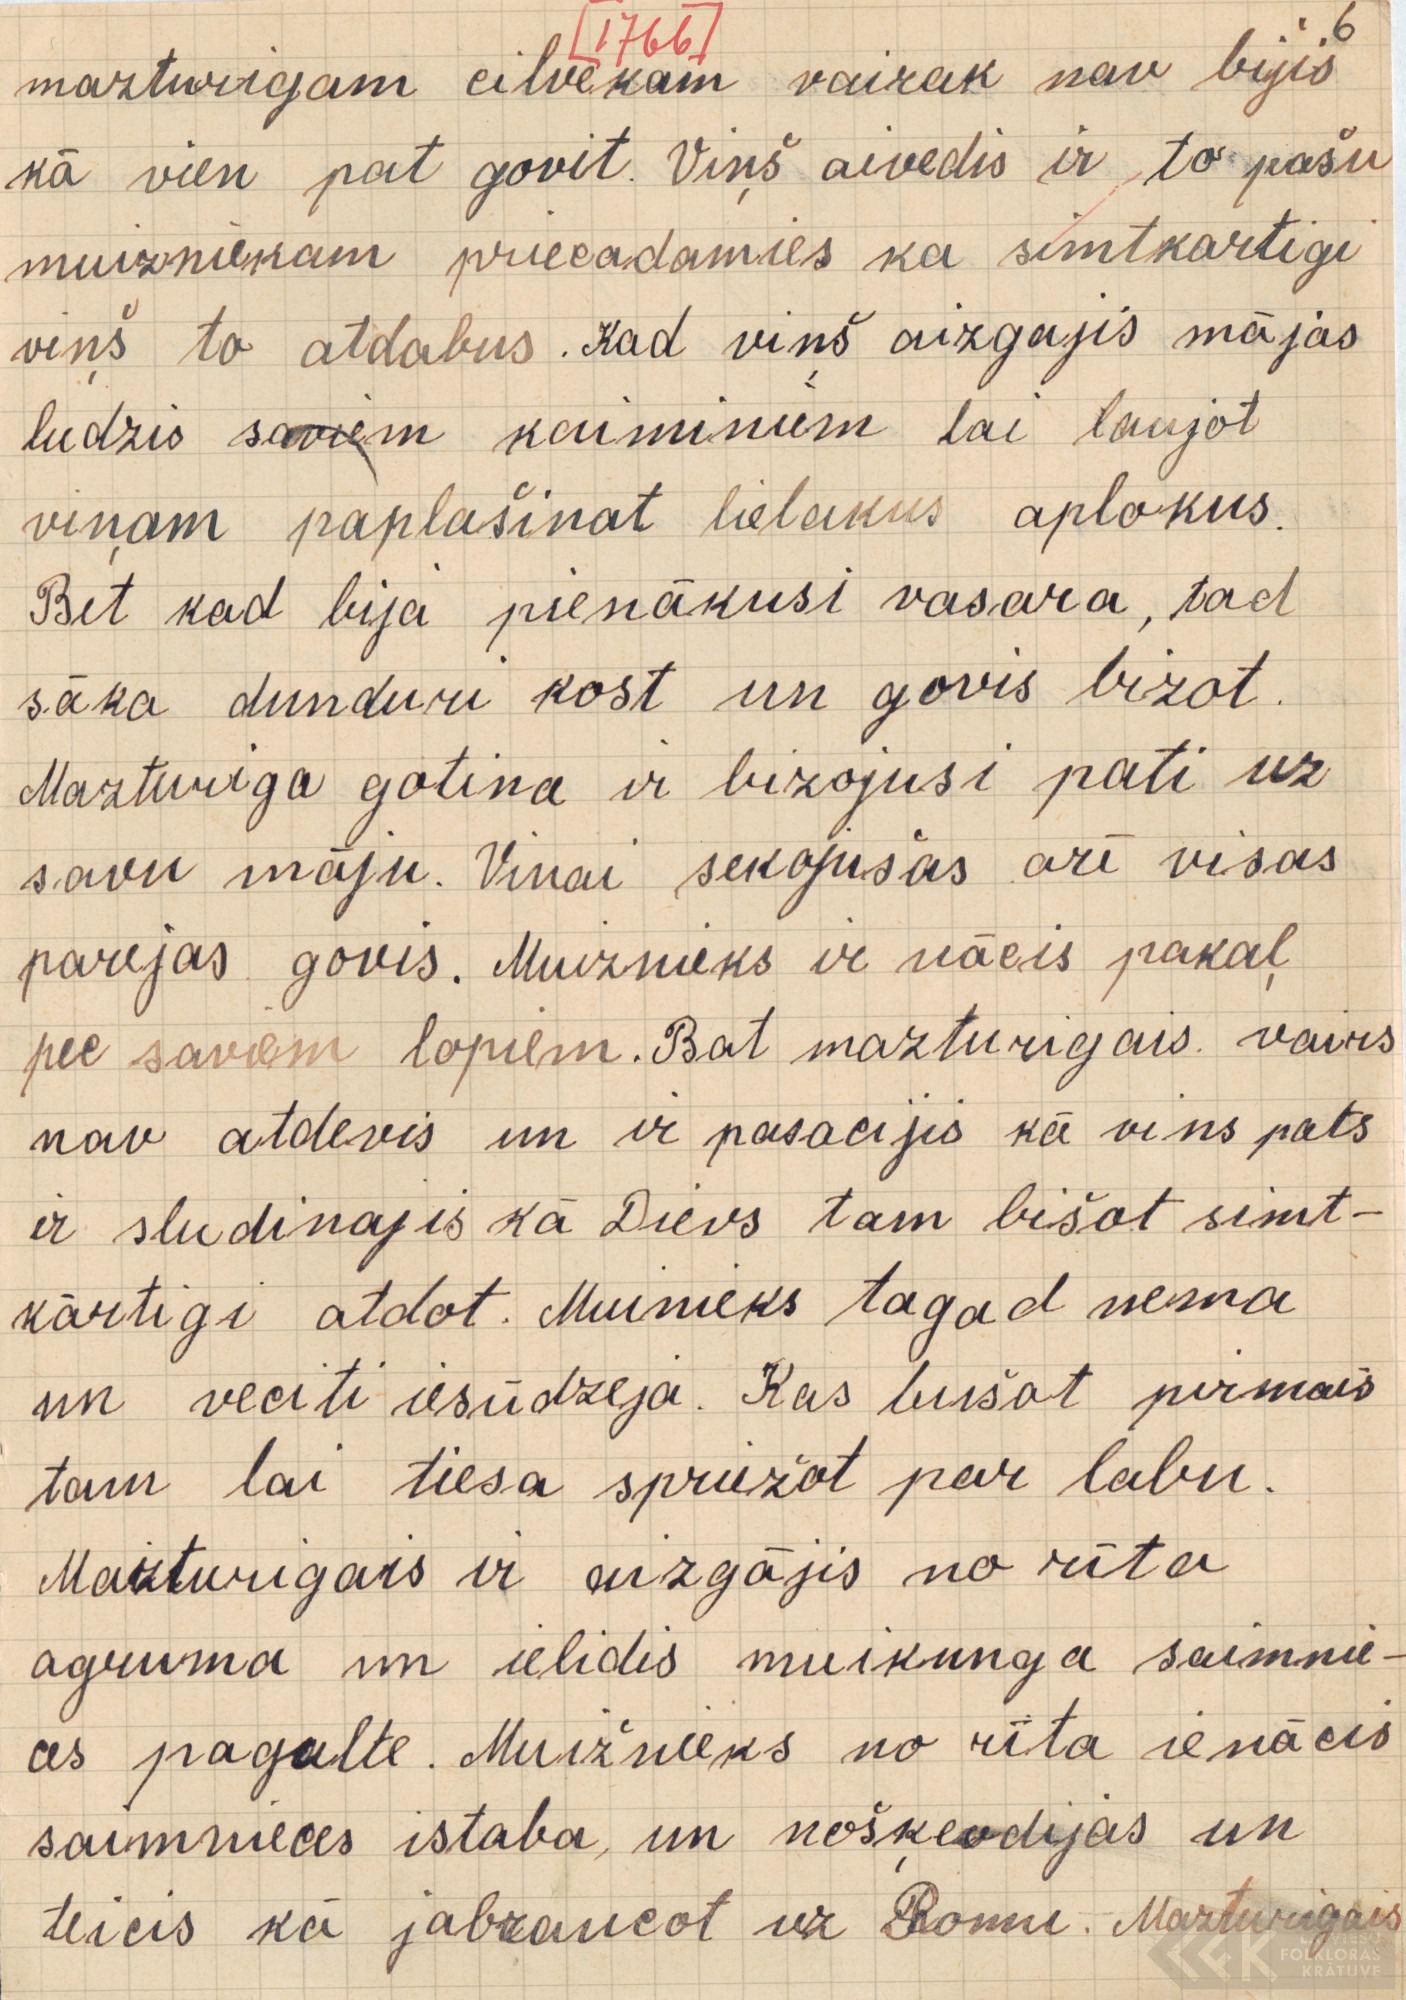 [1766]
6
mazturigam cilvekam vairak nav bijis
kā vien pat govit. Viņš aivedis ir to pašu
muizniekam priecadamies ka simtkartigi
viņš to atdabus. Kad viņš aizgajis mājas
ludzis saviem kaiminiem lai laujot
viņam paplašinat lielakus aplokus.
Bet kad bija pienākusi vasara, tad
sāka dunduri kost un govis bizot.
Mazturiga gotina ir bizojusi pati uz
savu māju. Vinai sekojušas arī visas
parejas govis. Muiznieks ir nācis pakaļ
pee saviem lopiem. Bat mazturigais vairs
nav atdevis un ir pasacijis kā vins pats
ir sludinajis kā Dievs tam bišot simt-
kārtigi atdot. Muinieks tagad nema
un veciti iesūdzeja. Kas bušot pirmais
tam lai tiesa spriežot par labu.
Mazturigais ir aizgājis no rīta
agruma un ielidis muikunga saimnie-
ces pagulte. Muižnieks no rīta ienācis
saimnieces istaba, un nošķeodijas un
teicis kā jabraucot uz Romu. Mazturigais
LATVIEŠU
FOLKLORAS
KRĀTUVE